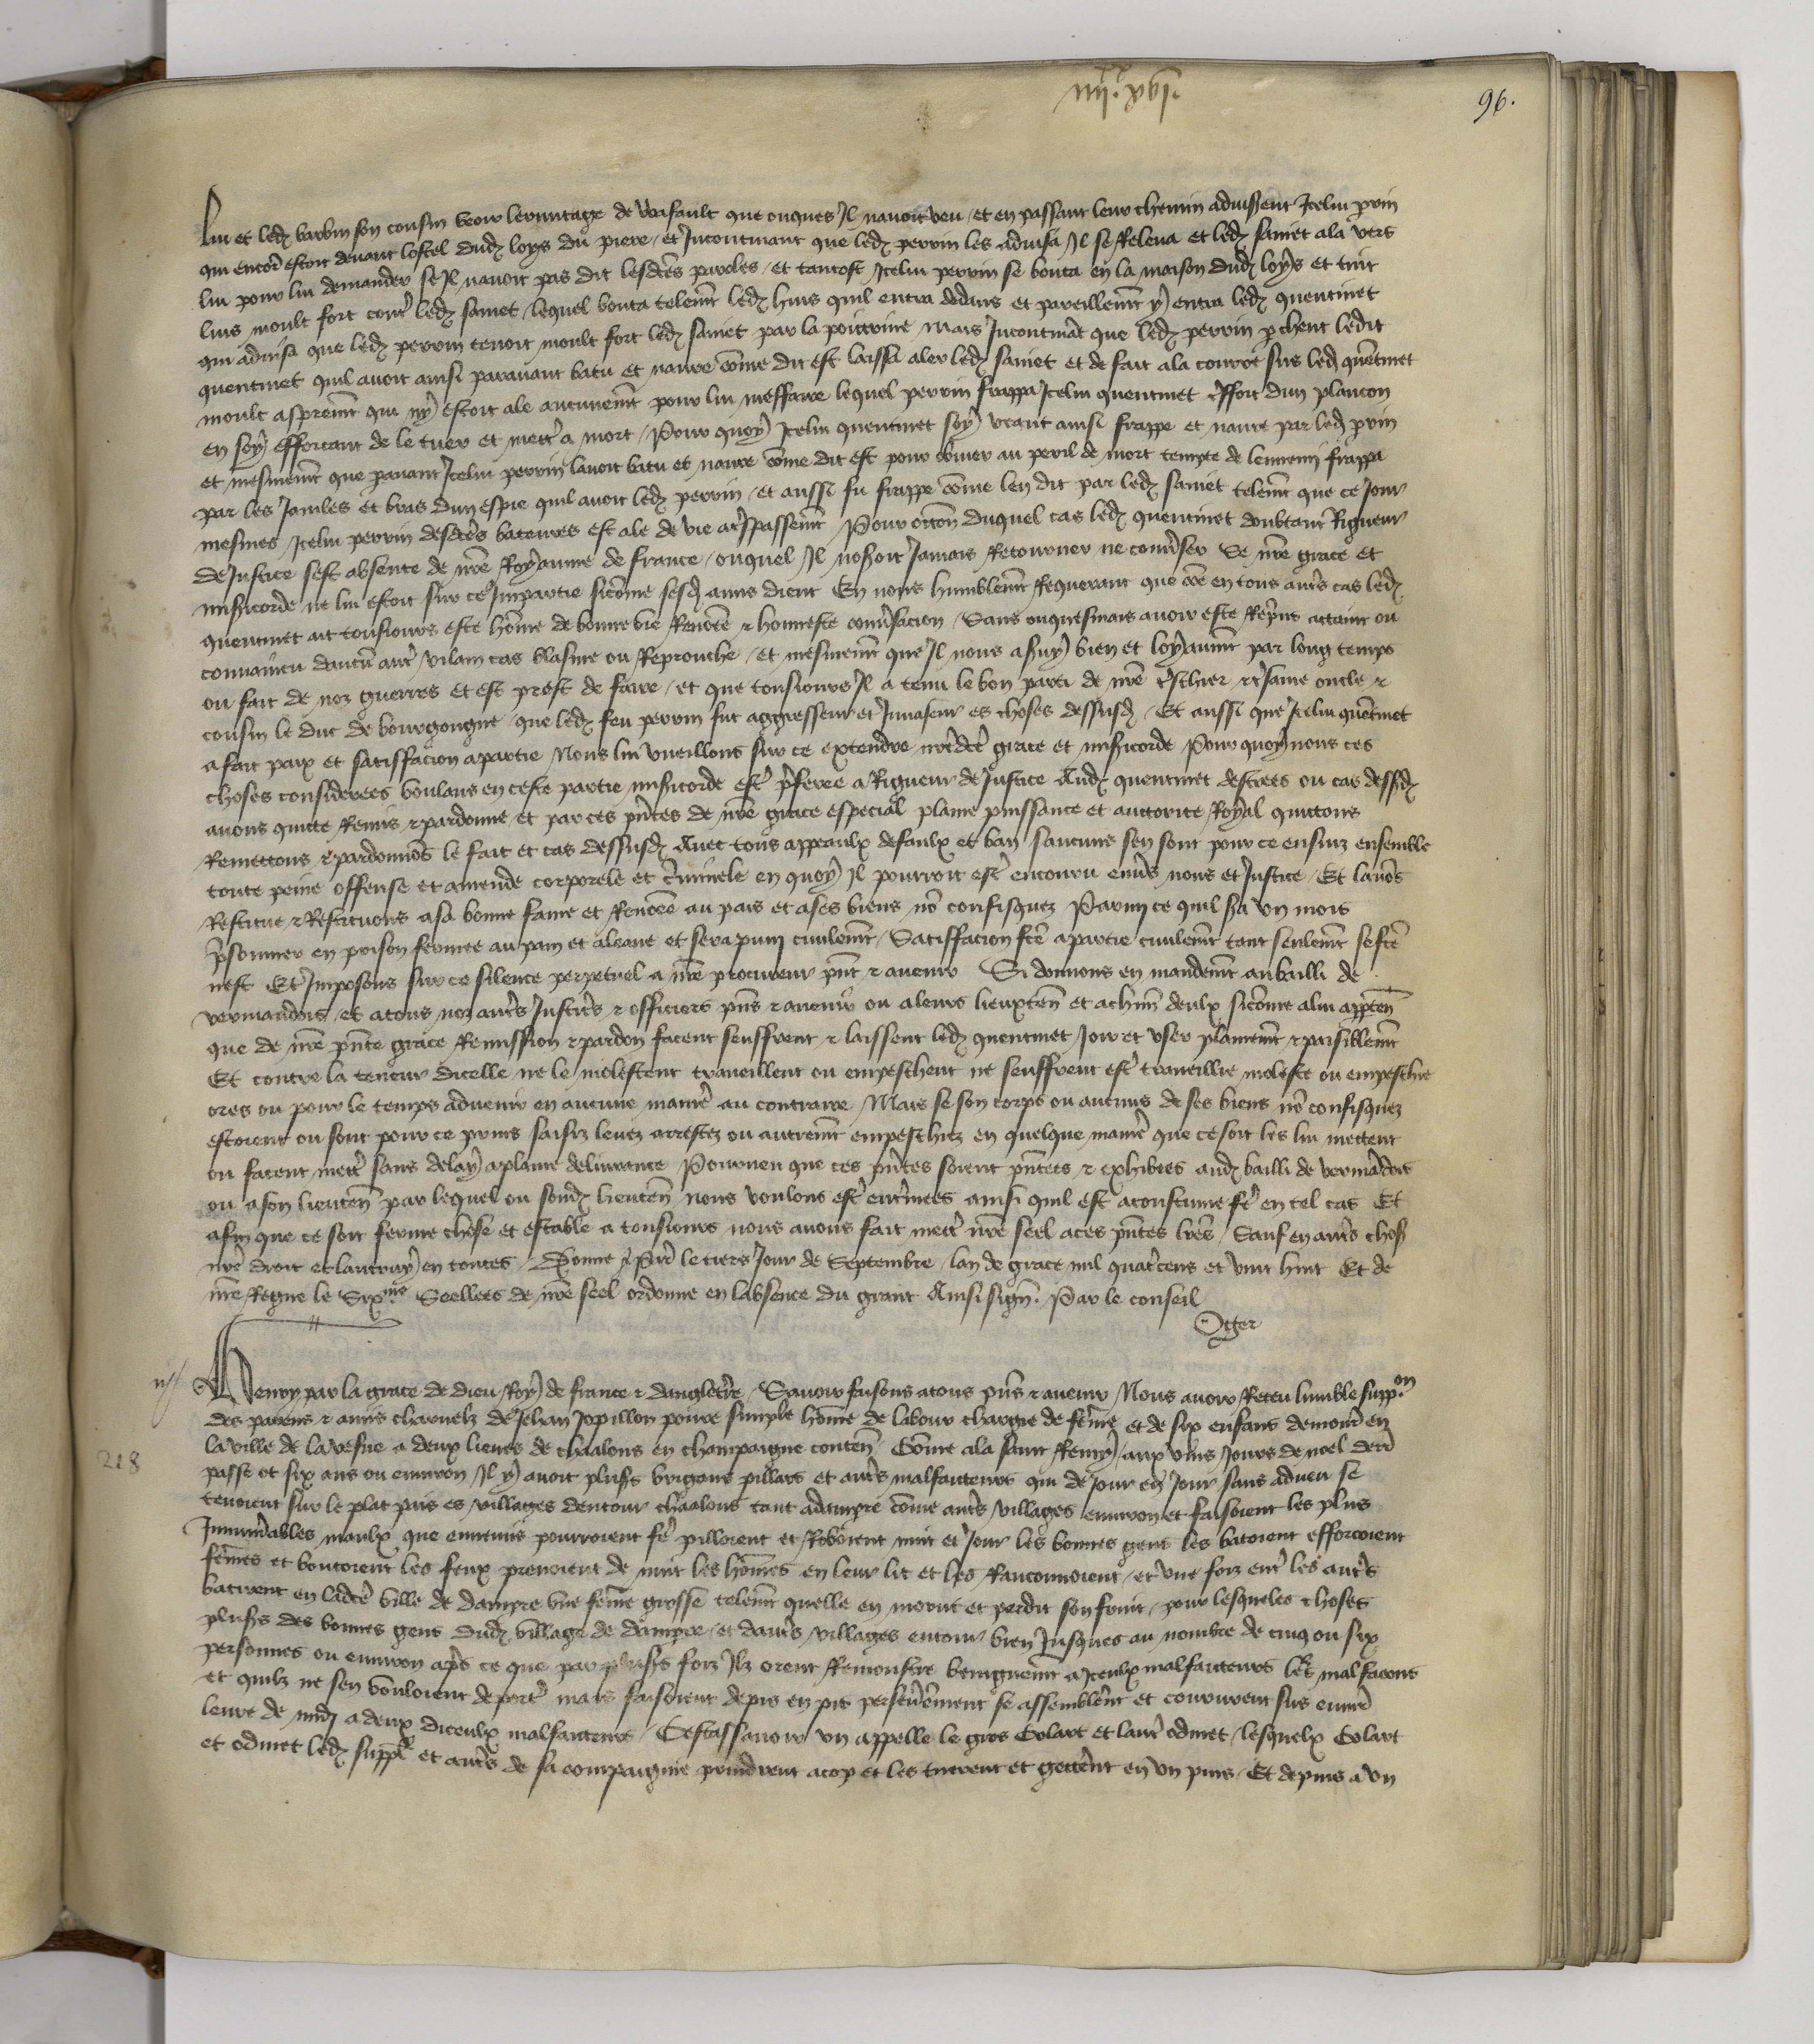 iiiixx. xvi.
96.
lui et led. barbin son cousin veoir lermitage de que onques Il navoit veu / et en passant leur chemin adviserent Icelui prin
qui encor estoit devant lostel dud. loys du piere / et Incontinant que led. perrin les advisa Il se Releva et led. samet ala vers
lui pour lui demander se Il navoit pas dit lesdces paroles / et tantost Icelui perrin se bouta en la maison dud. loys et tint
luis moult fort contr led. samet / lequel bouta telemt led. huis quil entra dedans et pareillemt y entra led. quentinet
qui advisa que led. perrin tenoit moult fort led. samet par la poittrine Mais Incontinat que led. perrin pchent ledit
quentinet quil avoit ainsi paravant batu et navre come dit est laissa aler led. samet et de fait ala courre sus led. quetinet
moult aspremt qui ny estoit ale aucunemt pour lui meffaire lequel perrin frappa Icelui quentinet effort dun plancon
en soy efforcant de le tuer et mettr a mort / Pour quoy Icelui quentinet soy veant ainsi frappe et navre par led. prin
et mesmemt que pavant Icelui perrin lavoit batu et navre come dit est pour obvier au peril de mort tempte de lennemi frappa
par les Jambes et bras dun espie quil avoit led. perrin / et aussi fu frappe come len dit par led. samet telemt que ce Jour
mesmes Icelui perrin desdces bateures est ale de vie a trespassemt Pour occon duquel cas led. quentinet doubtant Rigueur
de Justice sest absente de nre Royaume de france / ouquel Il noseroit Jamais Retourner ne converser Se nre grace et
misericorde ne lui estoit sur ce Impartie sicome sesd. amis dient En nous humblemt Requerant que come en tous autrs cas led.
quentinet ait tousiours este home de bonne vie Renomee & honneste conversacion / Sans onquesmais avoir este Reprins attaint ou
convaincu daucun autr vilain cas blasme ou Reprouche / et mesmemt que Il nous a servy bien et loyaumt par long temps
ou fait de noz guerres et est prest de faire / et que tousiours Il a tenu le bon parti de nre treschier & tresame oncle &
cousin le duc de bourgongne / que led. feu perrin fut aggresseur et Invaseur es choses dessusd. / Et aussi que Icelui quetinet
a fait paix et satisfacion a partie Nous lui vueillons sur ce extendre nredce grace et misericorde Pour quoy nous ces
choses considerees voulans en ceste partie misericorde estr preferee a Rigueur de Justice Aud. quentinet des ou cas dessusd.
avons quitte Remis & pardonne et par ces pntes de nre grace especial plaine puissance et auctorite Royal quittons
Remettons & pardonnos le fait et cas dessusd. Avec tous appeaulx defaulx et ban saucuns sen sont pour ce ensuiz ensemble
toute peine offense et amende corporele et criminele en quoy Il pourroit estr encouru envers nous et Justice / Et lavos
Restitue & Restituons a sa bonne fame et Renomee au pais et a ses biens no confisquez Parmi ce quil sera un mois
prisonnier en prison fermee au pain et a leaue et sera puni civilemt / Satisfacion fce a partie civilemt tant seulemt se fce
nest Et Imposons sur ce silence perpetuel a nre procureur pnt & avenir Si donnons en mandemt au bailli de
vermandois / et a tous noz autrs Justicrs & officiers pns & avenir ou a leurs lieuxten et a chun deulx sicome a lui appten
que de nre pnte grace Remission & pardon facent seuffrent & laissent led. quentinet Joir et user plainemt & paisiblemt
Et contre la teneur dicelle ne le molestent traveillent ou empeschent ne seuffrent estr traveillie moleste ou empeschie
ores ou pour le temps advenir en aucune manier au contraire Mais se son corps ou aucuns de ses biens no confisquez
estoient ou sont pour ce prins saisiz levez arrestez ou autremt empeschiez en quelque manier que ce soit les lui mettent
ou facent mettr sans delay a plaine delivrance Pourveu que ces pntes soient pntees & exhibees aud. bailli de vermadois
ou a son lieuten par lequel ou sond. lieuten nous voulons estr enterinees ainsi quil est acoustume fe en tel cas Et
afin que ce soit ferme chose et estable a tousiours nous avons fait mettr nre seel a ces pntes lres / Sauf en autrs chos
nre droit et lautruy en toutes / Donne a Par le tiers Jour de Septembre / lan de grace mil quatrcens et vint huit Et de
nre Regne le Sixme Scellees de nre seel ordonne en labsence du grant Ainsi sign. Par le conseil
Oger
Henry par la grace de dieu Roy de france & dangleterre / Savoir faisons a tous pns & avenir Nous avoir Receu lumble suppon
des parens & amis charnelz de Jehan Jopillon povre simple home de labour chargie de feme et de six enfans demour en
218
la ville de la vesue a deux lieues de chaalons en champaigne conten Come a la saint Remy / aux vins Jours de noel derr
passe ot six ans ou environ / Il y avoit plusrs brigans pillars et autrs malfaiteurs qui de Jour en Jour sans adveu se
tenoient sur le plat pais es villages dentour chaalons tant a dampre come autrs villages environ et faisoient les plus
Innumerables maulx que ennemis pourroient fe pilloient et Roboient nuit et Jour les bonnes gens les batoient efforcoient
femes et boutoient les feux prenoient de nuit les homes en leur lit et les Ranconnoient / et une foiz entr les autrs
batirent en ladce ville de dampre une feme grosse telemt quelle en morut et perdit son fruit / pour lesqueles choses
plusrs des bonnes gens dud. village de dampre / et dautrs villages entour bien Jusques au nombre de cinq ou six
personnes ou environ aps ce que par plusrs foiz Ilz orent Remonstre benignemt a Iceulx malfaiteurs leurs malfacons
et quilz ne sen vouloient deportr mais faisoient de pis en pis perseverement se assemblerent et coururent sus environ
leure de midi a deux diceulx malfaiteurs / Cestassavoir un appelle le gros Colart et lautr odinet / lesquelx Colart
et odinet led. suppt et autrs de sa compaignie prindrent a cop et les tuerent et getterent en un puis / Et depuis a un